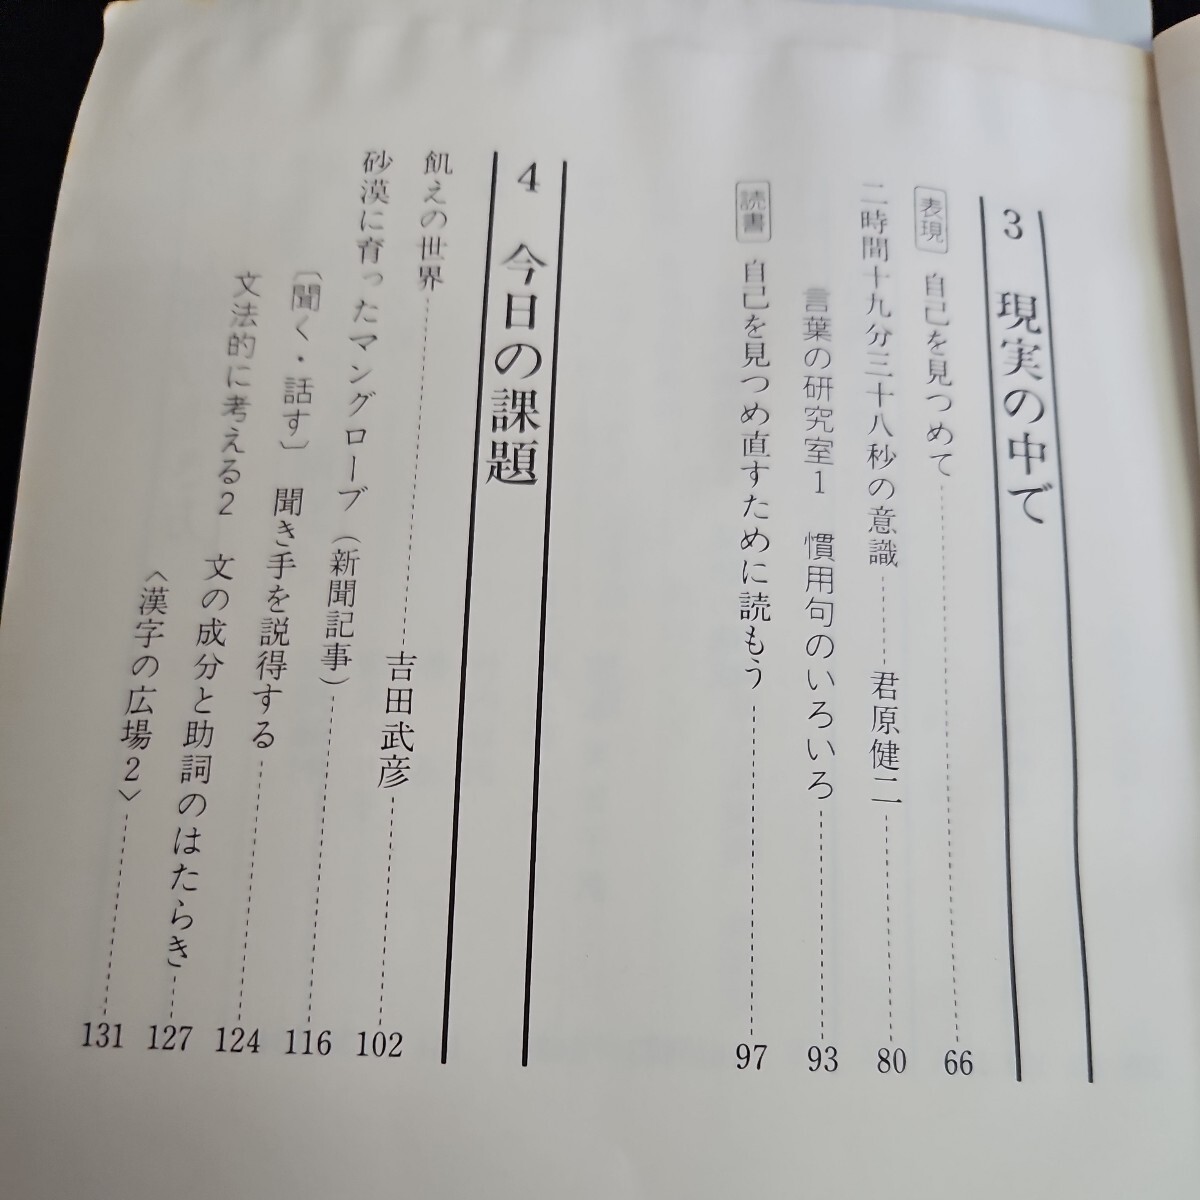 3 現実の中で
表現 自己を見つめて 66
二時間十九分三十八秒の意識 君原健二 80
言葉の研究室1 慣用句のいろいろ 93
読書 自己を見つめ直すために読もう 97
4 今日の課題
飢えの世界 吉田武彦 102
砂漠に育ったマングローブ(新聞記事) 116
〔聞く・話す〕 聞き手を説得する 124
文法的に考える2 文の成分と助詞のはたらき 127
〈漢字の広場2〉 131